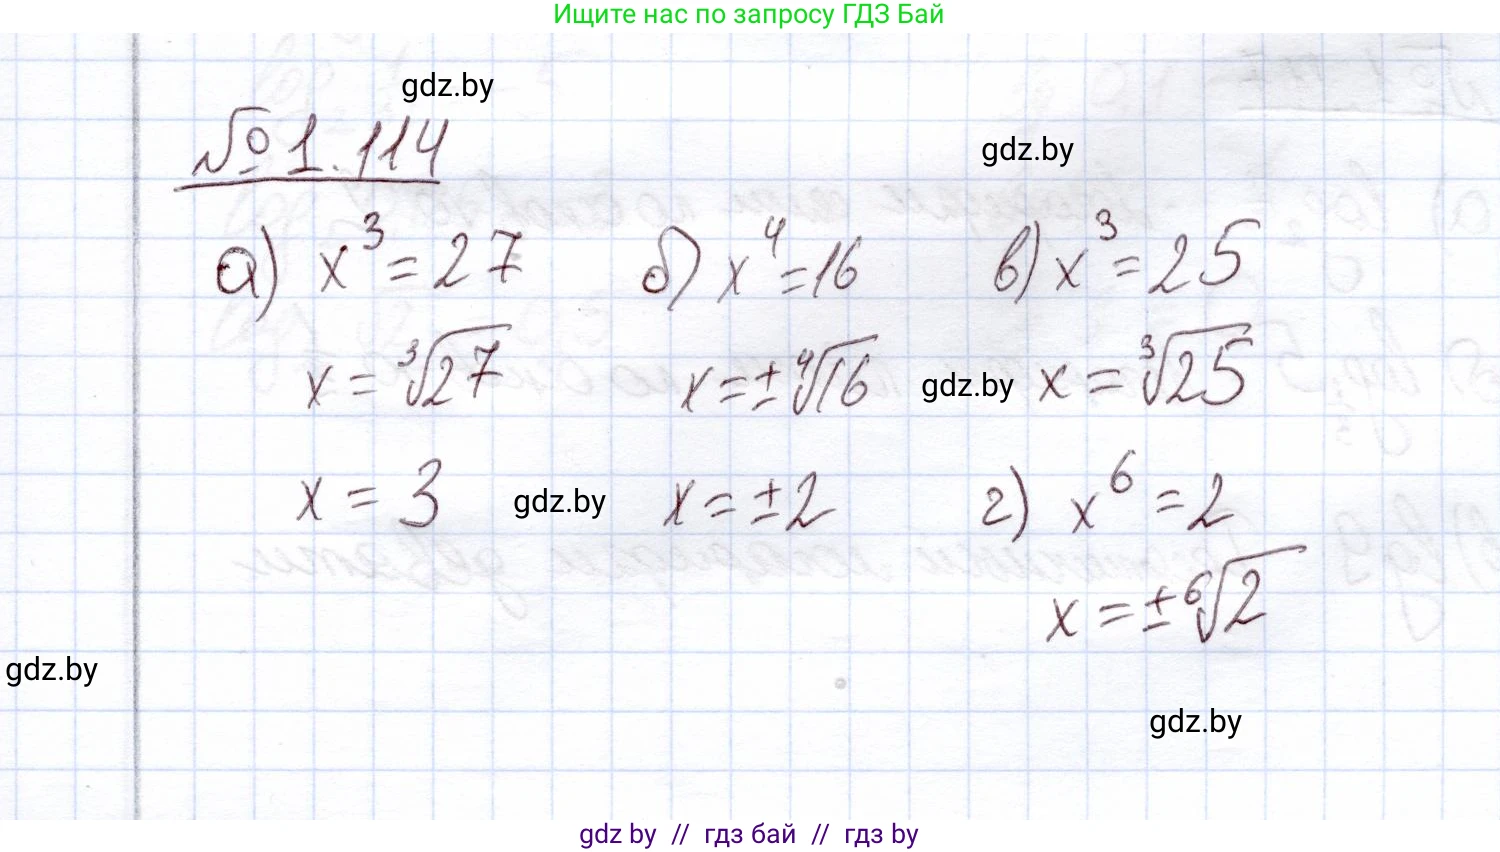 Ищите нас по запросу ГДЗ Бай
gdz.by
№ 1.114
gdz.by
а) x³ = 27
x = ³√27
x = 3
б) x⁴ = 16
x = ± ⁴√16
x = ± 2
gdz.by
в) x³ = 25
gdz.by
x = ³√25
г) x⁶ = 2
x = ± ⁶√2
gdz.by
gdz.by
gdz by // гдз бай // гдз by